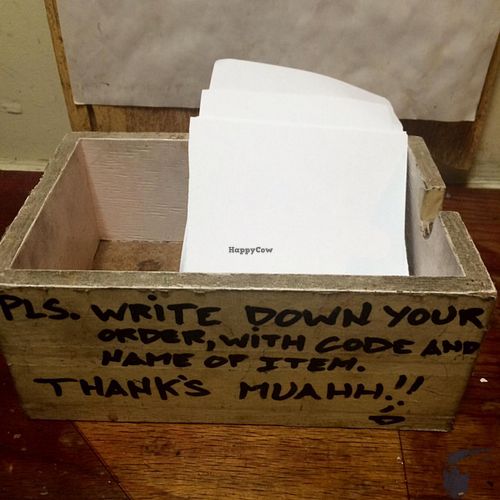 HappyCow
PLS. WRITE DOWN YOUR
ORDER, WITH CODE AND
NAME OF ITEM.
THANKS MUAHH!!